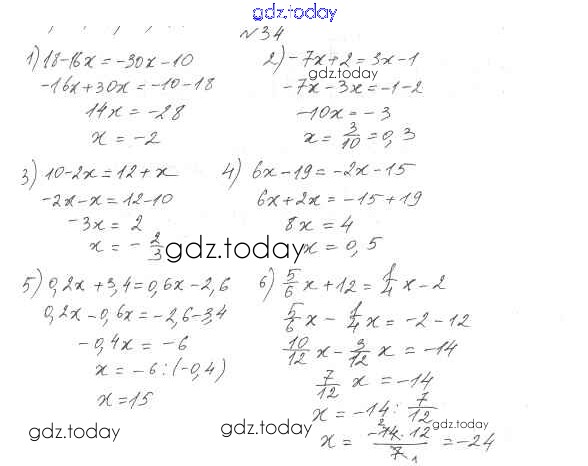 gdz.today
№34
1) 18-16x=-30x-10
-16x+30x=-10-18
14x=-28
x=-2
2) -7x+2=3x-1
gdz.today
-7x-3x=-1-2
-10x=-3
x=3/10=0,3
3) 10-2x=12+x
-2x-x=12-10
-3x=2
x=-2/3
4) 6x-19=-2x-15
6x+2x=-15+19
8x=4
x=0,5
gdz.today
5) 0,2x+3,4=0,6x-2,6
0,2x-0,6x=-2,6-3,4
-0,4x=-6
x=-6:(-0,4)
x=15
6) 5/6x+12=1/4x-2
5/6x-1/4x=-2-12
10/12x-3/12x=-14
7/12x=-14
x=-14:7/12
x=-14·12/7=-24
gdz.today
gdz.today
gdz.today